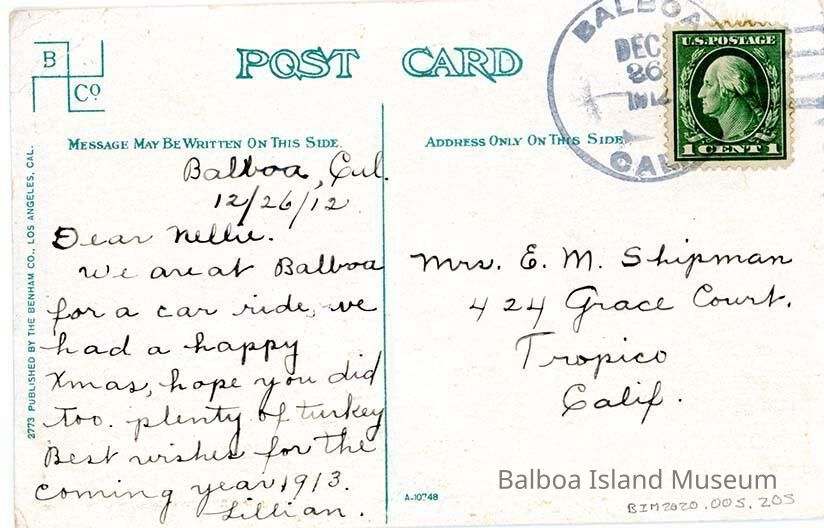 B
Co
POST CARD
MESSAGE MAY BE WRITTEN ON THIS SIDE.
ADDRESS ONLY ON THIS SIDE
BALBOA
DEC
26
1912
CAL
U.S. POSTAGE
1 CENT 1
Balboa, Cal.
12/26/12
Dear Nellie.
We are at Balboa
for a car ride, we
had a happy
Xmas, hope you did
too. plenty of turkey
Best wishes for the
coming year 1913.
Lillian.
Mrs. E. M. Shipman
424 Grace Court.
Tropico
Calif.
2773 PUBLISHED BY THE BENHAM CO., LOS ANGELES, CAL.
A-10748
Balboa Island Museum
BIM2020.005.205